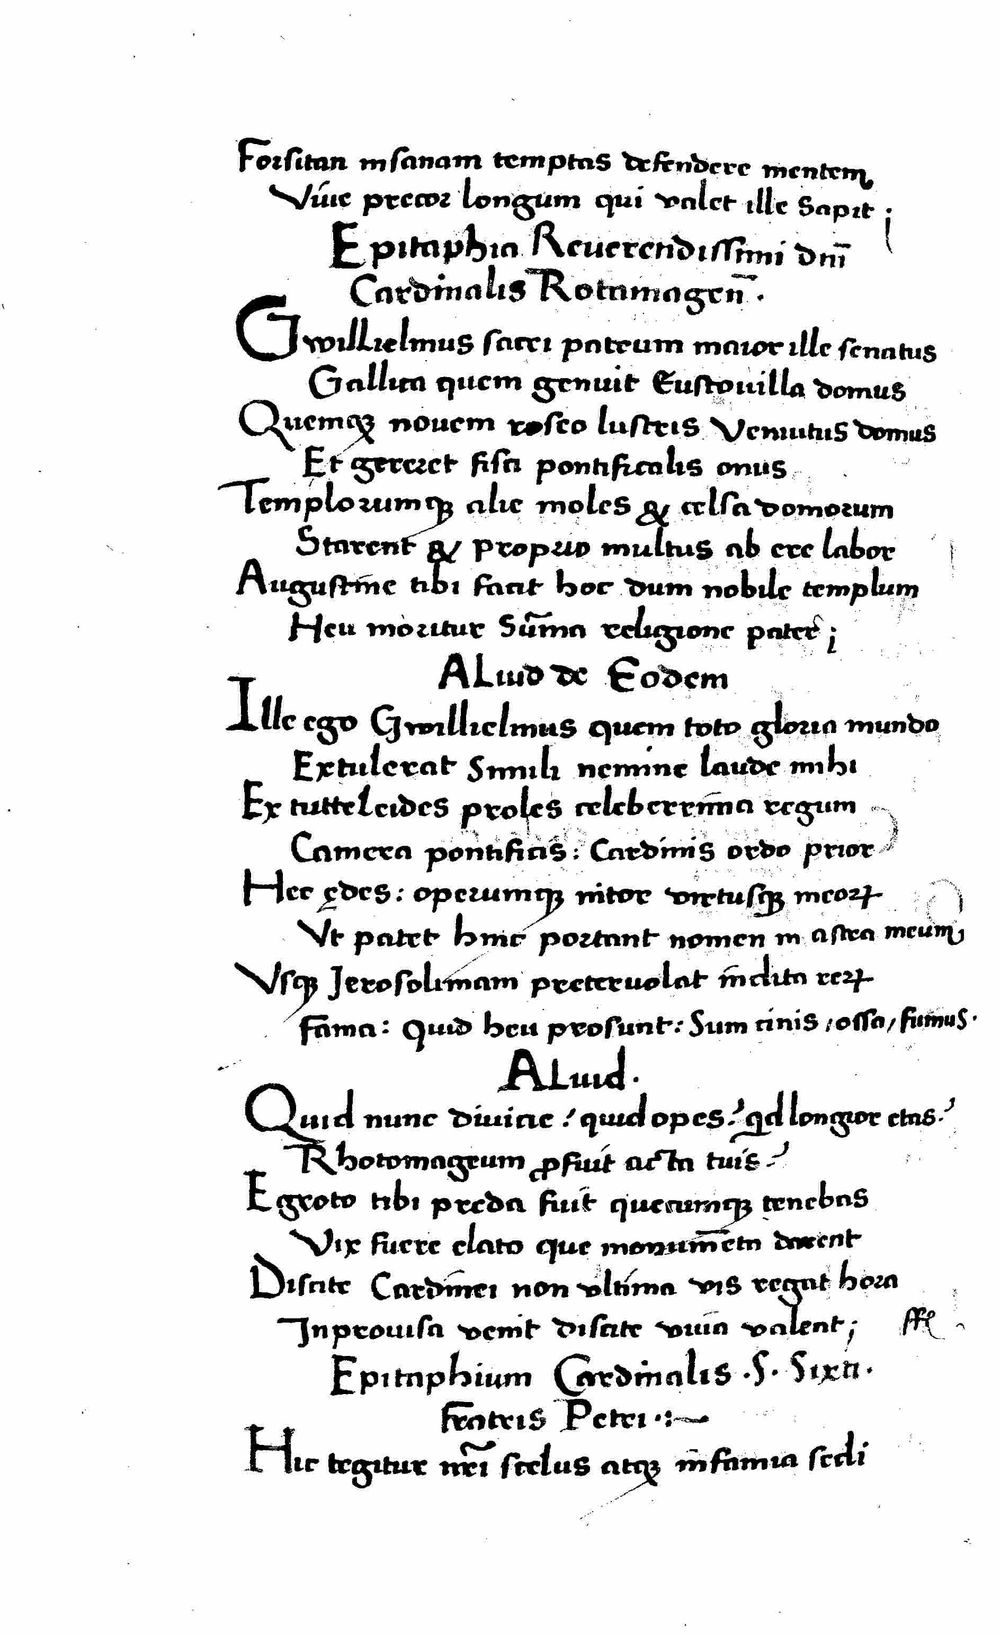 Forsitan insanam temptas defendere mentem
Viue precor longum qui valet ille Sapit ;
Epitaphia Reuerendissimi dnī
Cardinalis Rotamagen̄ .
Gwillielmus sacri patrum maior ille senatus
Gallica quem genuit Eustouilla domus
Quemqꝫ nouem roseo lustris Veniutus domus
Et gereret fisci pontificalis onus
Templorumqꝫ alie moles & celsa domorum
Starent & proprio multus ab ere labor
Augustine tibi facit hoc dum nobile templum
Heu moritur Sūma religione pater ;
ALiud de Eodem
Ille ego Gwillielmus quem toto gloria mundo
Extulerat Simili nemine laude mihi
Ex tutteleides proles celeberrima regum
Camera pontificis : Cardinis ordo prior
Hec ędes : operumqꝫ nitor virtusqꝫ meoꝝ
Vt patet hinc portant nomen in astra meum
Vsqꝫ Jerosolimam preteruolat inclita reꝝ
fama : Quid heu prosunt : Sum cinis / ossa / fumus .
ALiud .
Quid nunc diuicie ? quid opes ? qd longior etas ?
Rhotomageum ꝓfuit acta tuis ?
Egroto tibi preda fuit quecumqꝫ tenebas
Vix fuere elato que monum̄eta darent
Discite Cardinei non vltima vis regat hora
Inprouisa venit discite viuia valent ;
Epitaphium Cardinalis . S . Sixti .
fratris Petri .:~
Hic tegitur nrēi scelus atqꝫ infamia secli